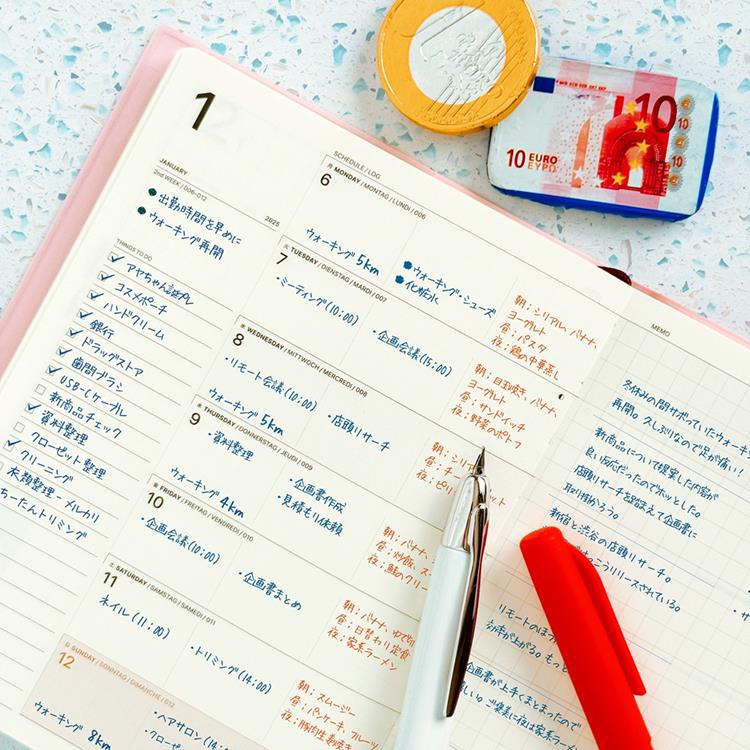 1
JANUARY
2nd WEEK / 006-012
2025
出勤時間を早めに
ウォーキング再開
THINGS TO DO
アヤちゃん誕プレ
コスメポーチ
ハンドクリーム
銀行
ドラッグストア
歯間ブラシ
USB-Cケーブル
新商品チェック
資料整理
クローゼット整理
クリーニング
衣類整理-メルカリ
ちーたんトリミング
SCHEDULE / LOG
6
MONDAY / MONTAG / LUNDI / 006
ウォーキング 5km
ウォーキング・シューズ
化粧水
朝:シリアル、バナナ、
ヨーグルト
昼:パスタ
夜:鶏の中華蒸し
7
火 TUESDAY / DIENSTAG / MARDI / 007
・ミーティング(10:00)
・企画会議(15:00)
朝:目玉焼き、バナナ、
ヨーグルト
昼:サンドイッチ
夜:野菜のポトフ
8
水 WEDNESDAY / MITTWOCH / MERCREDI / 008
・リモート会議(10:00)
ウォーキング 5km
・店頭リサーチ
朝:シリ
昼:チー
夜:ピリ
9
木 THURSDAY / DONNERSTAG / JEUDI / 009
・資料整理
ウォーキング 4km
・企画書作成
・見積もり依頼
朝:バナナ、
昼:炒飯、ス
夜:鮭のクリー
10
金 FRIDAY / FREITAG / VENDREDI / 010
・企画会議(10:00)
・企画書まとめ
朝:バナナ、ゆで
昼:日替わり定食
夜:家系ラーメン
11
土 SATURDAY / SAMSTAG / SAMEDI / 011
ネイル(11:00)
・トリミング(14:00)
朝:スムージー
昼:パンケーキ、フルーツ
夜:豚肉生姜焼き
12
日 SUNDAY / SONNTAG / DIMANCHE / 012
ウォーキング 8km
・ヘアサロン(14:00
・クローゼ
MEMO
冬休みの間サボっていたウォーキ
再開。久しぶりなので足が痛い!
新商品について提案した内容が
良い反応だったのでホッとした。
店頭リサーチを踏まえて企画書に
取り掛かろう。
新宿と渋谷の店頭リサーチ。
っこうリリースされている。
リモートのほう
効率が上がる。もっと
企画書が上手くまとまったので
しい。ご褒美に夜は家系ラー
10 EURO
ΕΥΡΩ
10
10
10
10